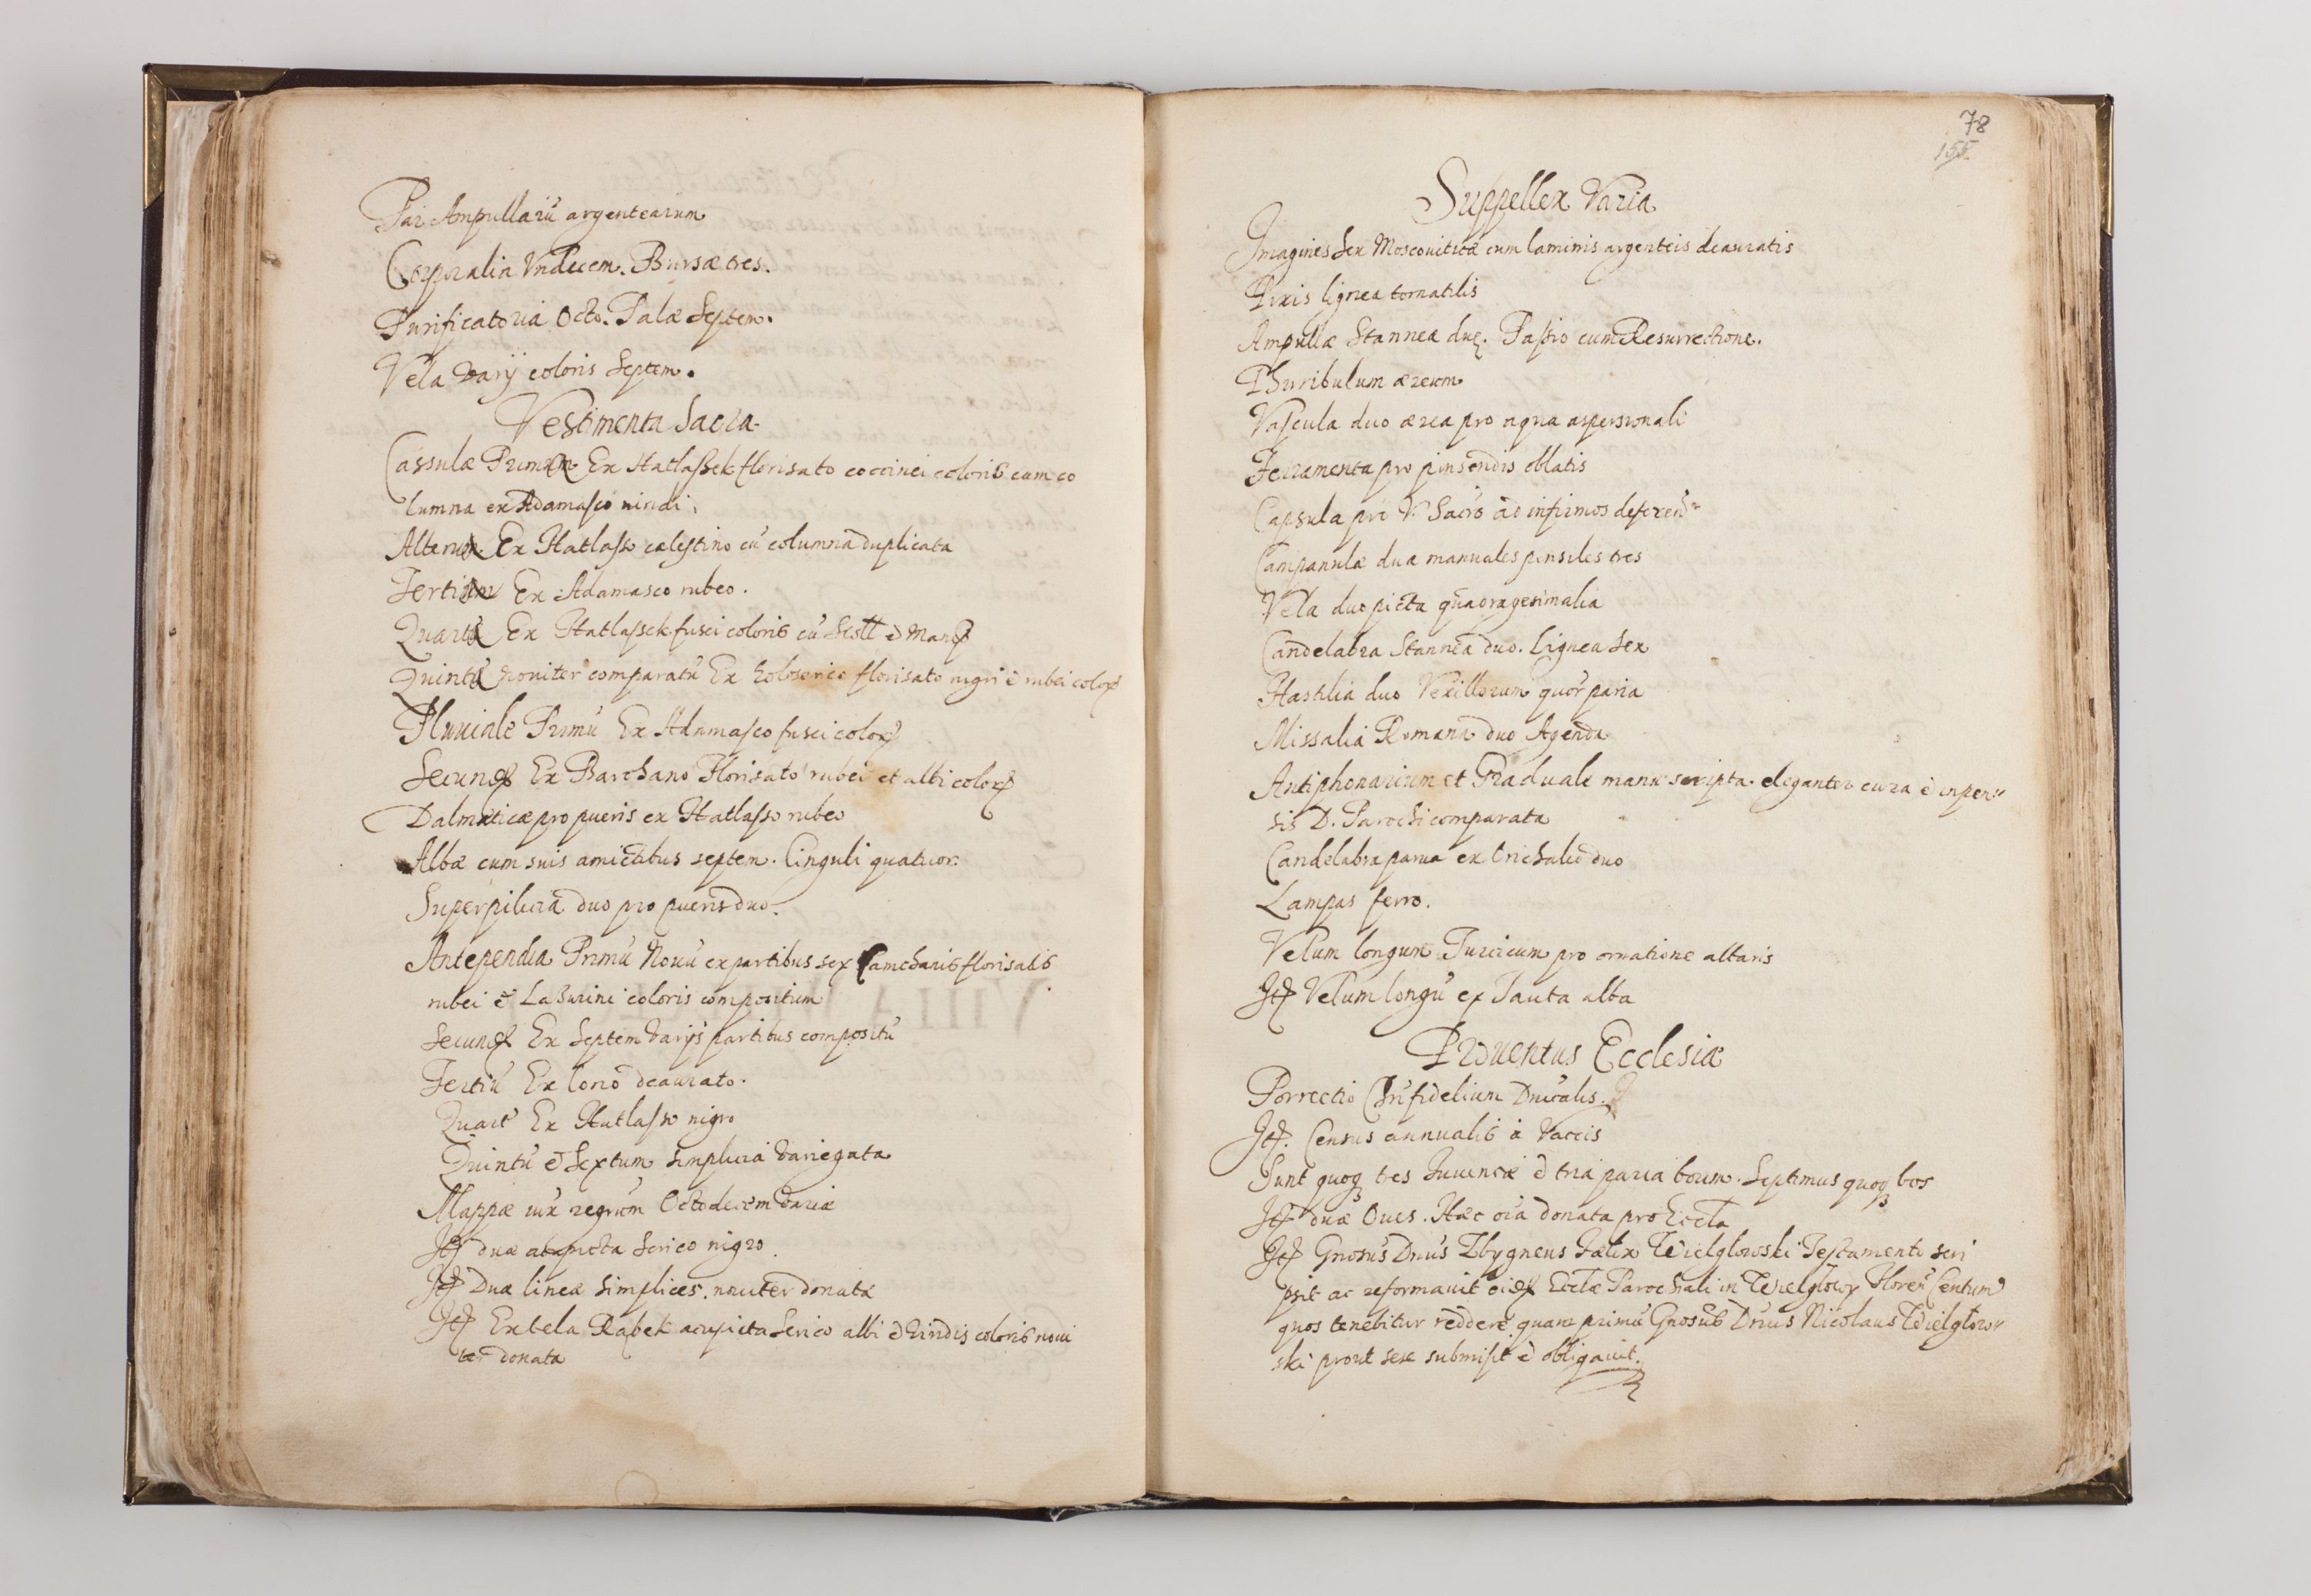 Par Ampullarū argentearum
Corporalia Undecem. Bursæ tres.
Purificatoria Octo. Palæ Septem.
Vela Varij coloris Septem.
Vestimenta Sacra.
Cassulæ Ex Hatlassek florisato coccinei coloris cum co
lumna ex Adamasco viridi
Ex Hatlasso cælestino cū columna duplicata
Ex Adamasco rubeo.
Ex Hatlassek fusci coloris cū Stoll et Manip
noviter comparatū Ex holoserico florisato nigri et rubei color
Pluviale Primū Ex Adamasco fusci color
Secund Ex Barchano Florisato rubei et albi color
Dalmaticæ pro pueris ex Hatlasso rubeo
Albæ cum suis amictibus septem. Cinguli quatuor.
Superpilicia duo pro pueris duo.
Antependia Primū Novū ex partibus sex Camcharis florisatis
rubei et Lazurini coloris compositum
Secund Ex Septem Varijs partibus compositū
Tertiū Ex Corio deaurato.
Quart Ex Hatlasso nigro
Quintū et Sextum simplicia Variegata
Mappæ Octodecem Variæ
Itē duæ acupicta Serico nigro.
Itē Duæ lineæ simplices noviter donatæ
Itē Ex tela Rabek acupicta Serico albi et Viridis coloris novi
ter donata
78
155
Suppellex Varia
Imagines Sex Moscoviticæ cum laminis argenteis deauratis
Pixis lignea tornatilis
Ampullæ Stanneæ duę. Passio cum Resurrectione.
Thuribulum æreum
Vascula duo ærea pro aqua aspersionali
Ferramenta pro pinsendis oblatis
Capsula pro V. Sacro ad infirmos deferend
Campanulæ duæ manuales pensiles tres
Vela duo picta quadragesimalia
Candelabra Stannea duo. Lignea Sex
Hastilia duo Vexillorum quor paria
Missalia Romana duo Agenda
Antiphonarium et Graduale manu scripta. eleganter cura et inpen
sis D. Parochi comparata
Candelabra parva ex Orichalco duo
Lampas ferro.
Velum longum Turcicum pro ornatione altaris
Itē Velum longū ex Tauta alba
Proventus Ecclesiæ
Porrectio Chrī fidelium Dnicalis.
Itē. Census annualis à Vaccis
Sunt quoq tres Juvencæ et tria paria boum. Septimus quoq bos
Itē duæ Oves. Hæc oīa donata pro Eccla
Itē Gnosus Dnus Zbygneus Wielglowski Testamento scri
psit ac reformavit eid Ecclæ Parochali in Wielglowy Floren Centum
quos tenebitur reddere quam primū Gnosus Dnus Nicolaus Wielglow
ski prout sese submisit et obligavit.